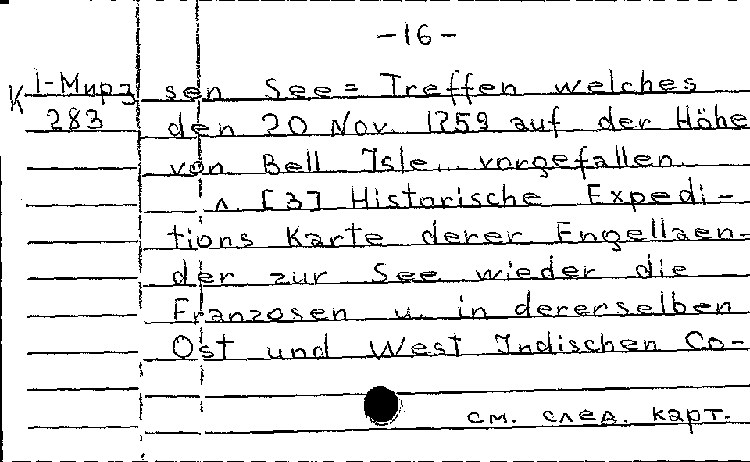 -16-
К 1-Мирз sen See= Treffen welches
283 den 20 Nov. 1759 auf der Höhe
von Bell Isle... vorgefallen.
л. [3] Historische Expedi-
tions Karte derer Engellaen-
der zur See wieder die
Franzosen u. in dererselben
Ost und West Indischen Co-
см. след. карт.